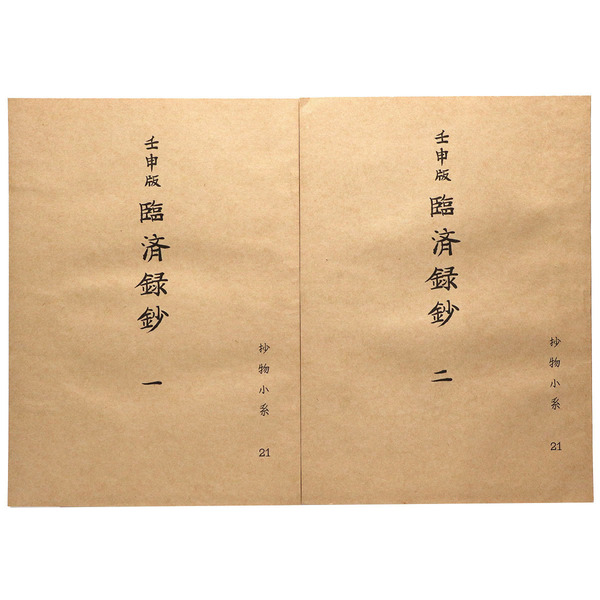 壬申版 臨済録鈔 一
抄物小系 21
壬申版 臨済録鈔 二
抄物小系 21